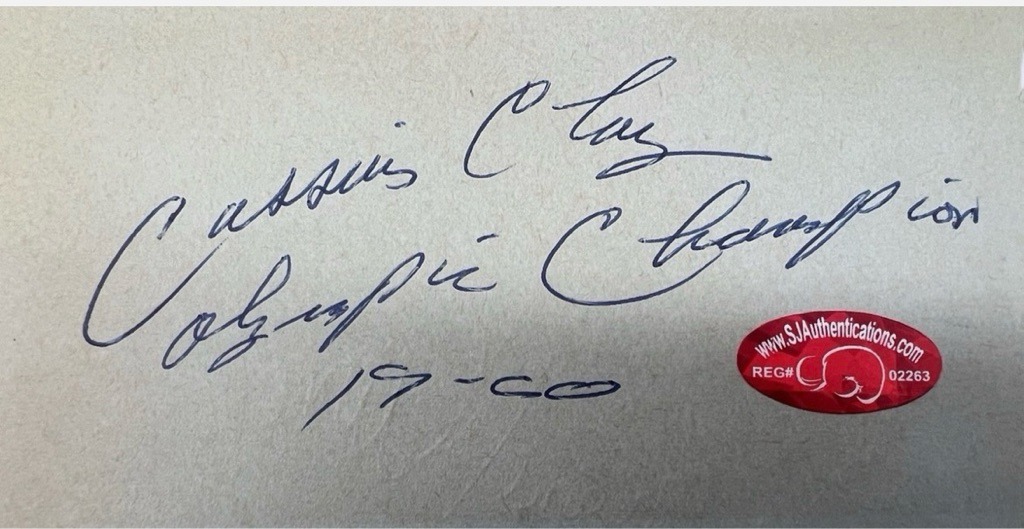 Cassius Clay
Olympic Champion
19-60
www.SJAuthentications.com
REG# 02263